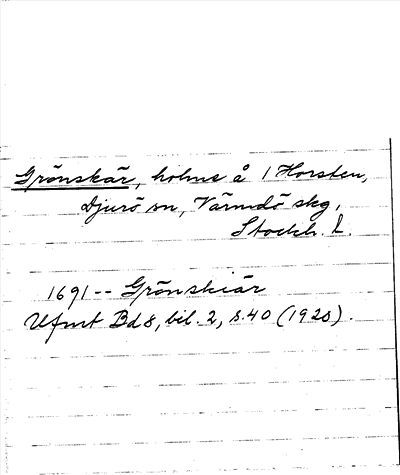 Grönskär, holme å 1 Horsten,
Djurö sn, Värmdö skg,
Stockh. L.
1691 -- Grönskiär
Ufmt Bd 8, bil. 2, s. 40 (1920).